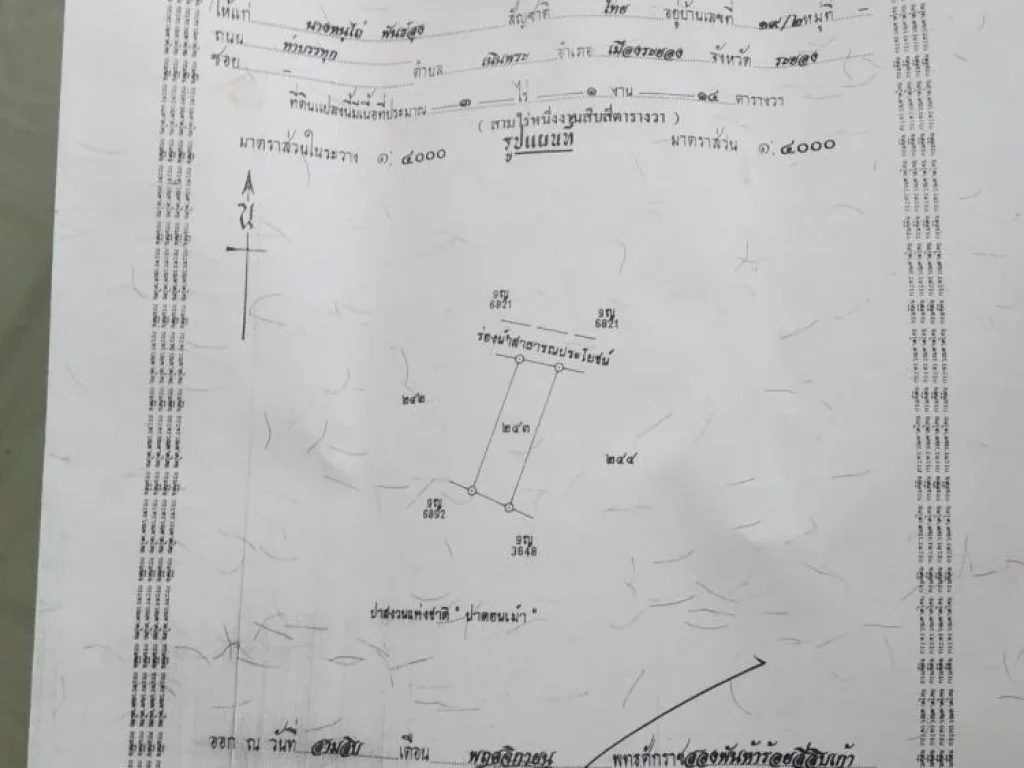 ให้แก่ นางหนูไถ่ พันธ์สูง สัญชาติ ไทย อยู่บ้านเลขที่ ๑๙/๒ หมู่ที่ –
ถนน ท่าบรรทุก ตำบล เนินพระ อำเภอ เมืองระยอง จังหวัด ระยอง
ซอย –
ที่ดินแปลงนี้มีเนื้อที่ประมาณ ๓ ไร่ ๑ งาน ๑๔ ตารางวา
( สามไร่หนึ่งงานสิบสี่ตารางวา )
มาตราส่วนในระวาง ๑:๔๐๐๐ รูปแผนที่ มาตราส่วน ๑:๔๐๐๐
น
6821
6821
ร่องน้ำสาธารณประโยชน์
๒๔๒
๒๔๓
๒๔๔
6892
3648
ป่าสงวนแห่งชาติ " ป่าดอนเม้า "
ออก ณ วันที่ สามสิบ เดือน พฤศจิกายน พุทธศักราช สองพันห้าร้อยสี่สิบเก้า